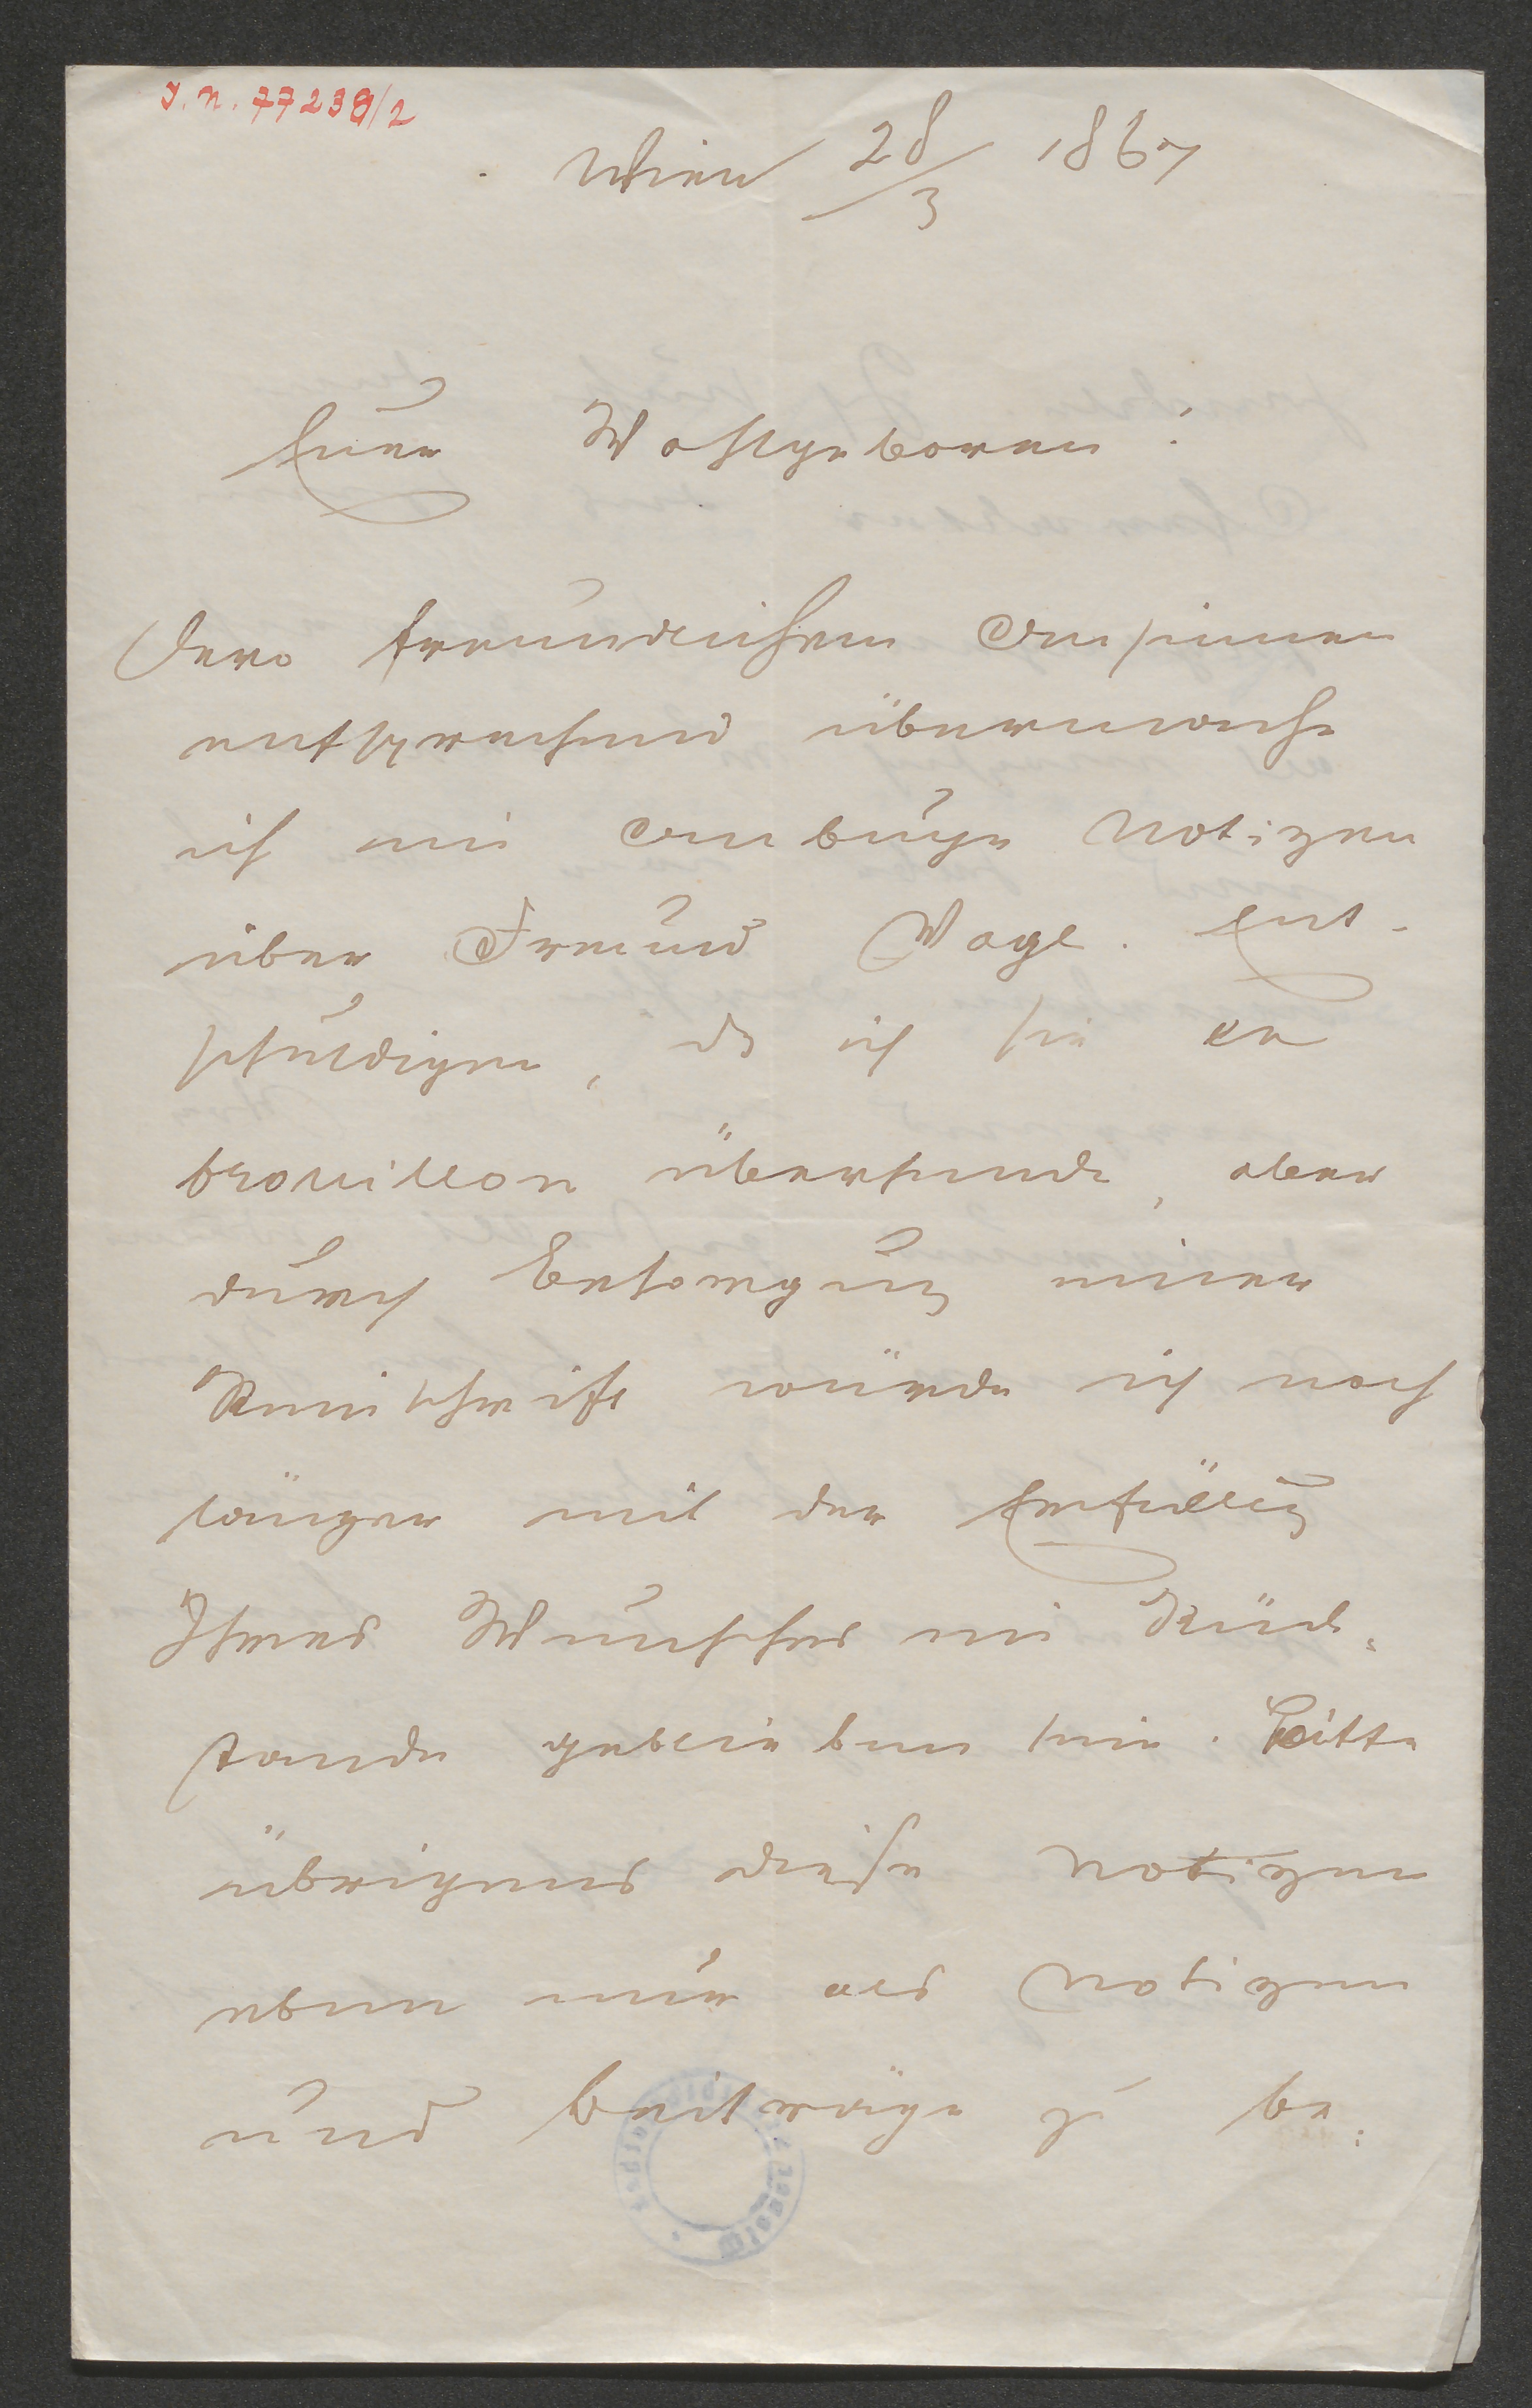 J. N. 77238/2
Wien 28/3 1867
Euer Wohlgeboren!
Dero freundlichem Ansinnen
entsprechend übermache
ich im Anbuge Notizen
über Freund Vogl. Ent-
schuldigen, ds ich sie en
brouillon übersende, aber
durch Besorgung einer
Reinschrift würde ich noch
länger mit der Erfüllung
Ihres Wunsches im Rück-
stande geblieben sein. Bitte
übrigens diese Notizen
eben nur als Notizen
und Beiträge zu be-